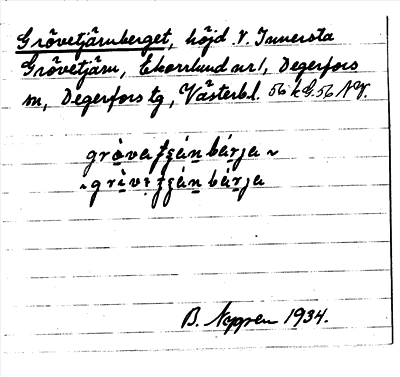 Grövetjärnberget, höjd V. Innersta
Grövetjärn, Ekorrlund nr 1, Degerfors
sn, Degerfors tg, Västerbl. 56 k G. 56 NV.
gròva tʃɛ́n bárja ~
~ grìvɛ tʃɛ́n bárja
B. Nygren 1934.